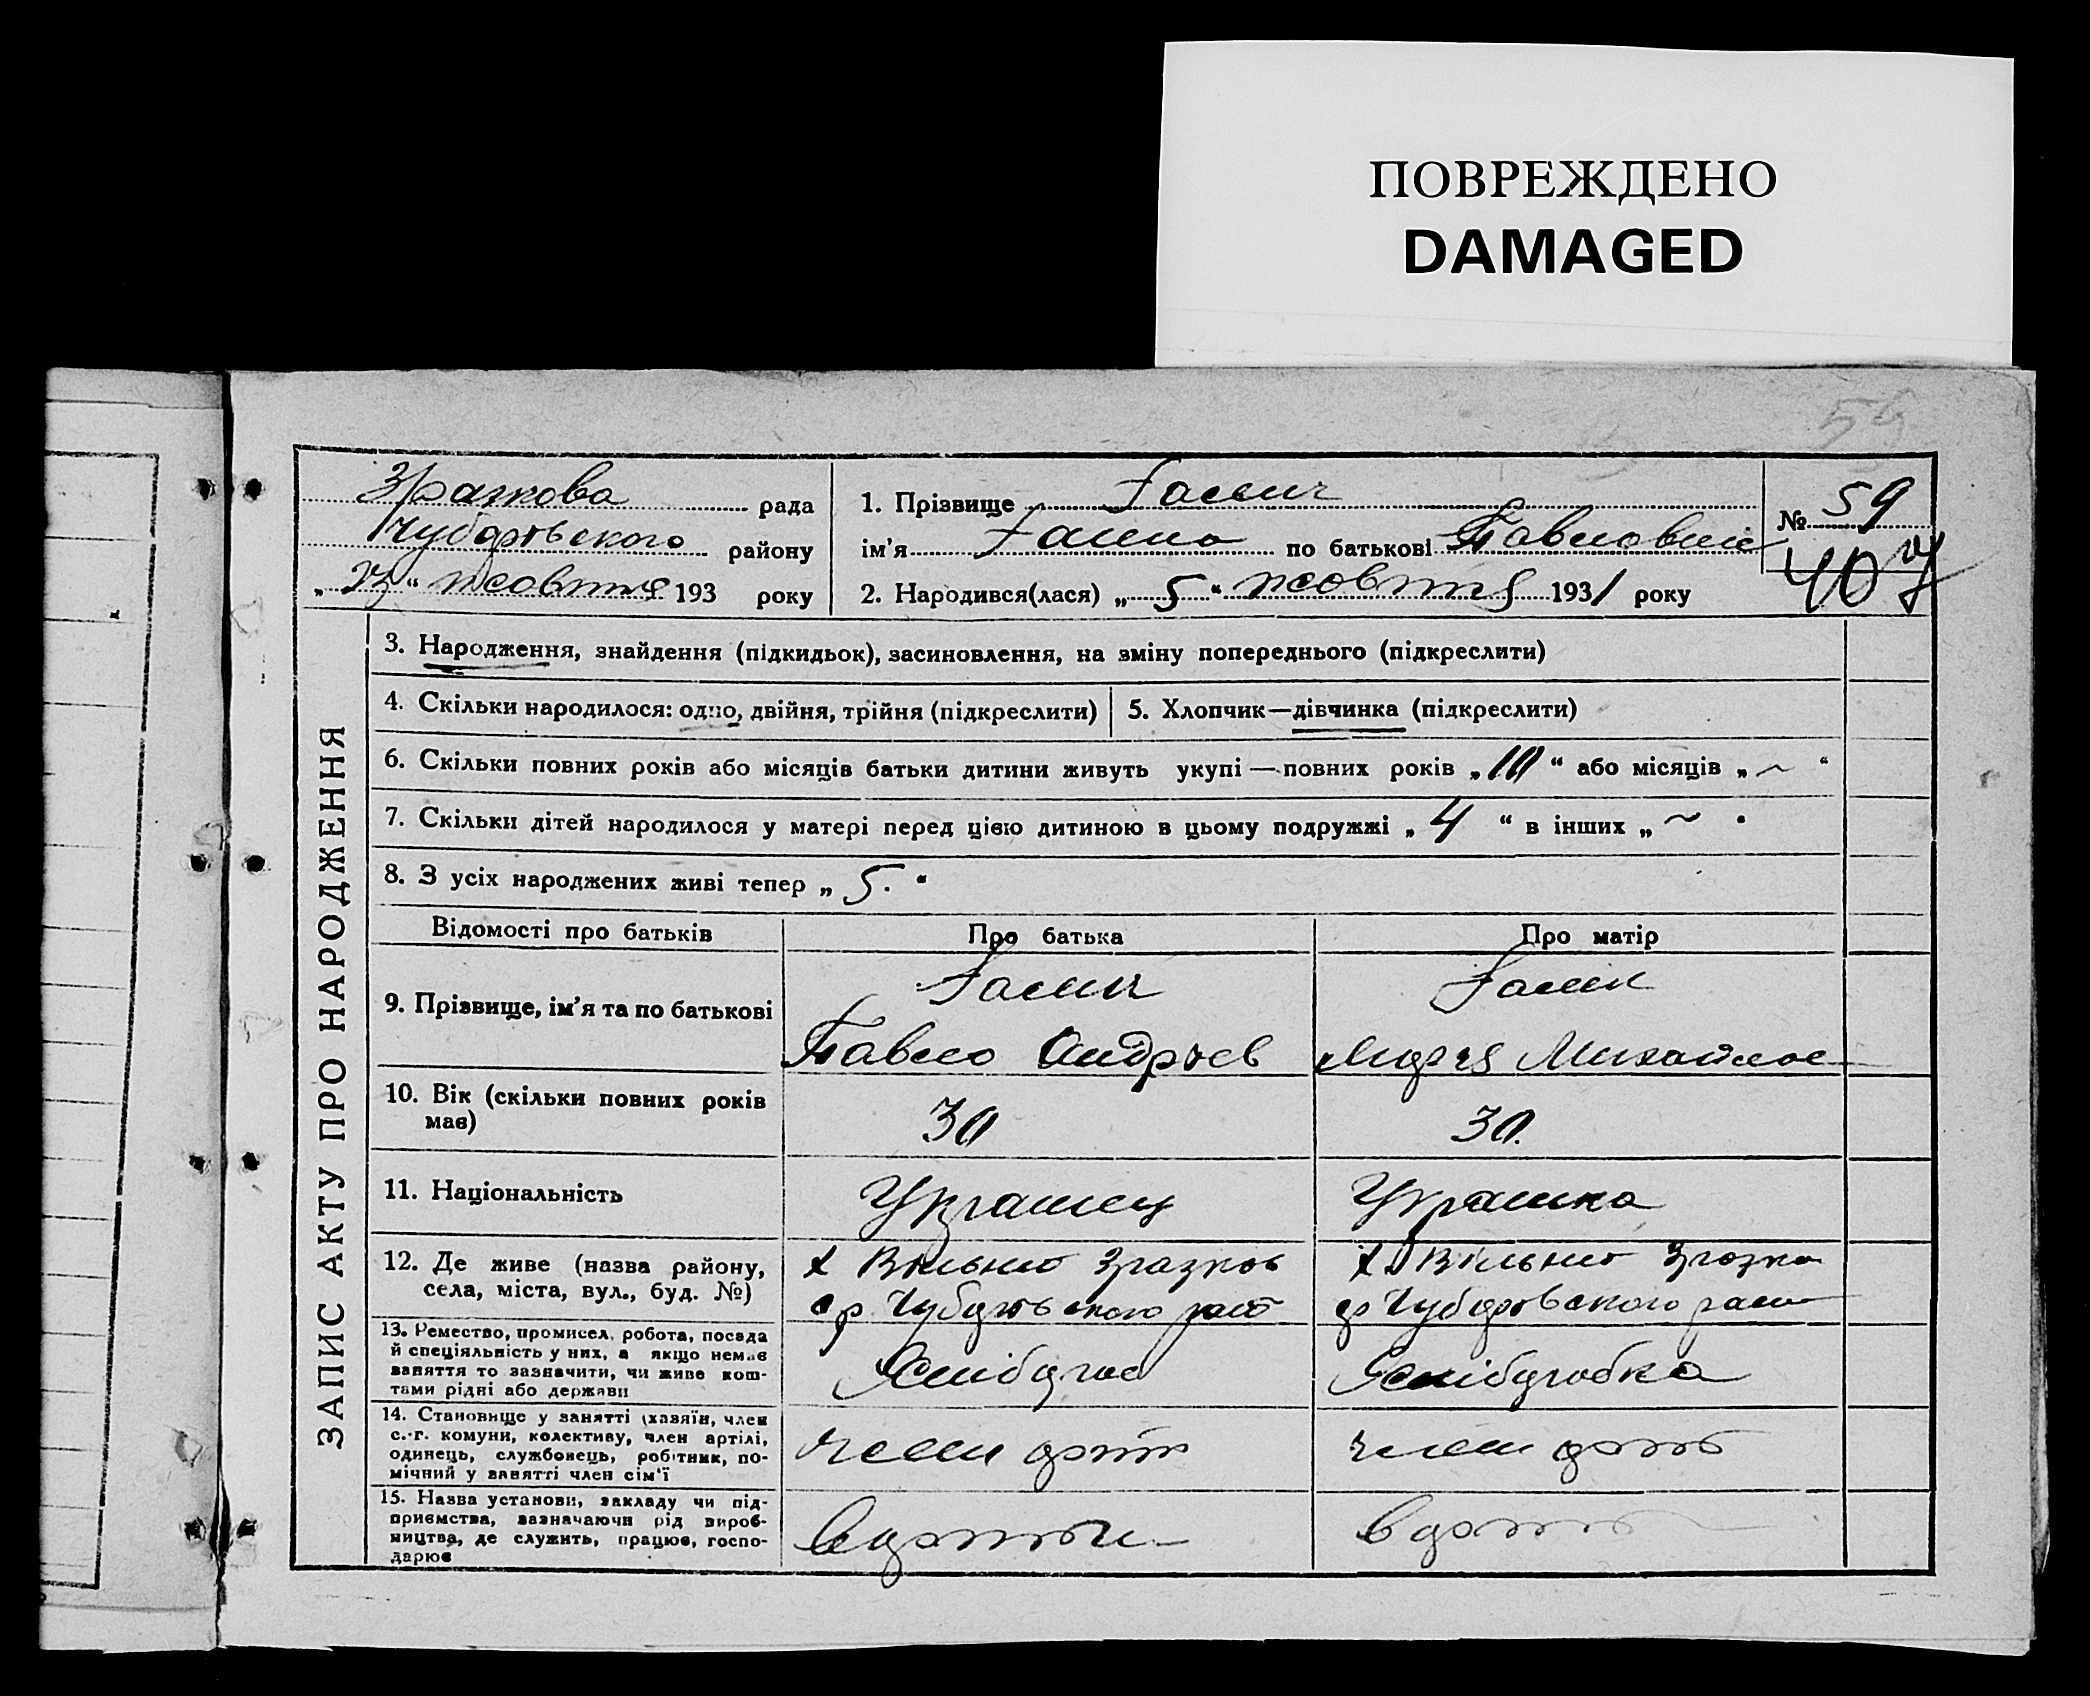 ПОВРЕЖДЕНО
DAMAGED
59
Зразкова рада
Чубарівського району
„23“ жовтня 193 року
1. Прізвище Галич
ім’я Ганна по батькові Павловна
2. Народився(лася) „5“ жовтня 1931 року
№ 59
40
ЗАПИС АКТУ ПРО НАРОДЖЕННЯ
3. Народження, знайдення (підкидьок), засиновлення, на зміну попереднього (підкреслити)
4. Скільки народилося: одно, двійня, трійня (підкреслити)
5. Хлопчик—дівчинка (підкреслити)
6. Скільки повних років або місяців батьки дитини живуть укупі—повних років „10“ або місяців „~“
7. Скільки дітей народилося у матері перед цією дитиною в цьому подружжі „4“ в інших „~“
8. З усіх народжених живі тепер „5.“
Відомості про батьків
Про батька
Про матір
9. Прізвище, ім’я та по батькові
Галич
Павло Андріев
Галич
Михайлов
10. Вік (скільки повних років
має)
30
30.
11. Національність
Українец
Украинка
12. Де живе (назва району,
села, міста, вул., буд. №)
х Вільно Зразков
Чубарівського рай
х Вільно Зразко
Чубарівського рай
13. Ремество, промисел, робота, посада
й спеціяльність у них, а якщо немає
заняття то зазначити, чи живе кош-
тами рідні або держави
Хлібороб
Хліборобка
14. Становище у занятті (хазяїн, член
с.-г. комуни, колективу, член артілі,
одинець, службовець, робітник, по-
мічний у занятті член сім’ї
член арт
член арті
15. Назва установи, закладу чи під-
приємства, зазначаючи рід вироб-
ництва, де служить, працює, госпо-
дарює
в артіли
в арті